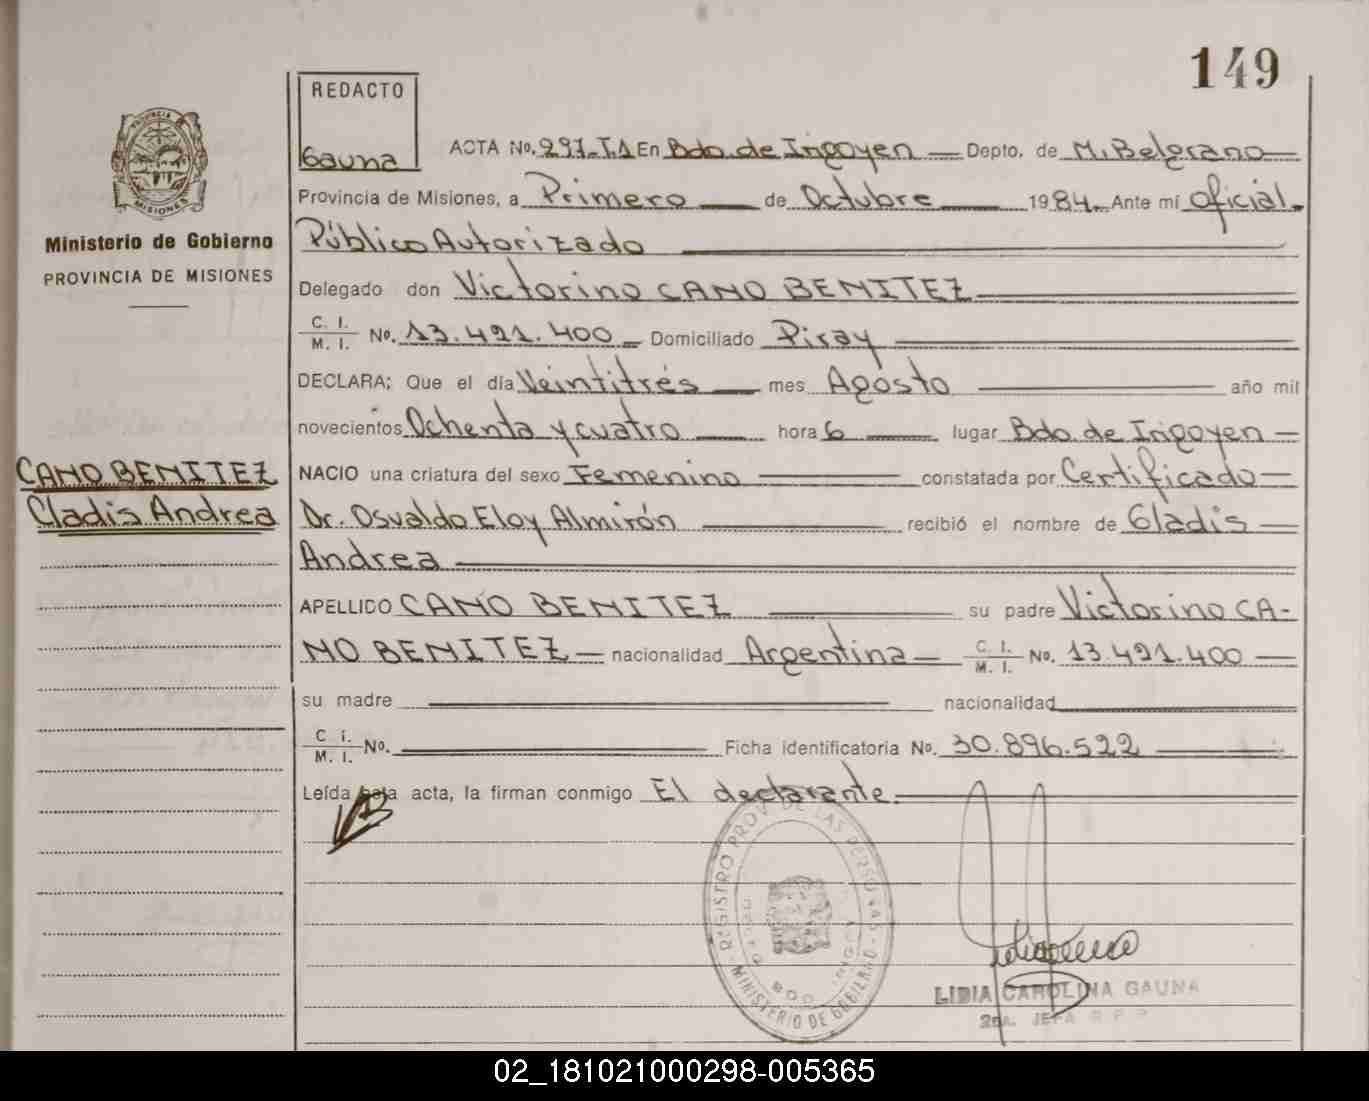 149
REDACTO
Gauna
PROVINCIA DE MISIONES
Ministerio de Gobierno
PROVINCIA DE MISIONES
CANO BENITEZ
Gladis Andrea
ACTA No. 297-T.1 En Bdo. de Irigoyen Depto. de M. Belgrano
Provincia de Misiones, a Primero de Octubre 1984. Ante mi Oficial
Público Autorizado
Delegado don Victorino CANO BENITEZ
C. I. / M. I. No. 13.421.400 Domiciliado Piray
DECLARA; Que el día Veintitrés mes Agosto año mil
novecientos Ochenta y cuatro hora 6 lugar Bdo. de Irigoyen
NACIO una criatura del sexo Femenino constatada por Certificado
Dr. Osvaldo Eloy Almirón recibió el nombre de Gladis
Andrea
APELLIDO CANO BENITEZ su padre Victorino CA-
NO BENITEZ nacionalidad Argentina C. I. / M. I. No. 13.421.400
su madre nacionalidad
C I. / M. I. No. Ficha identificatoria No. 30.896.522
Leída esta acta, la firman conmigo El declarante.
REGISTRO PROV. DE LAS PERSONAS - MINISTERIO DE GOBIERNO
LIDIA CAROLINA GAUNA
2da. JEFA R P P
02_181021000298-005365